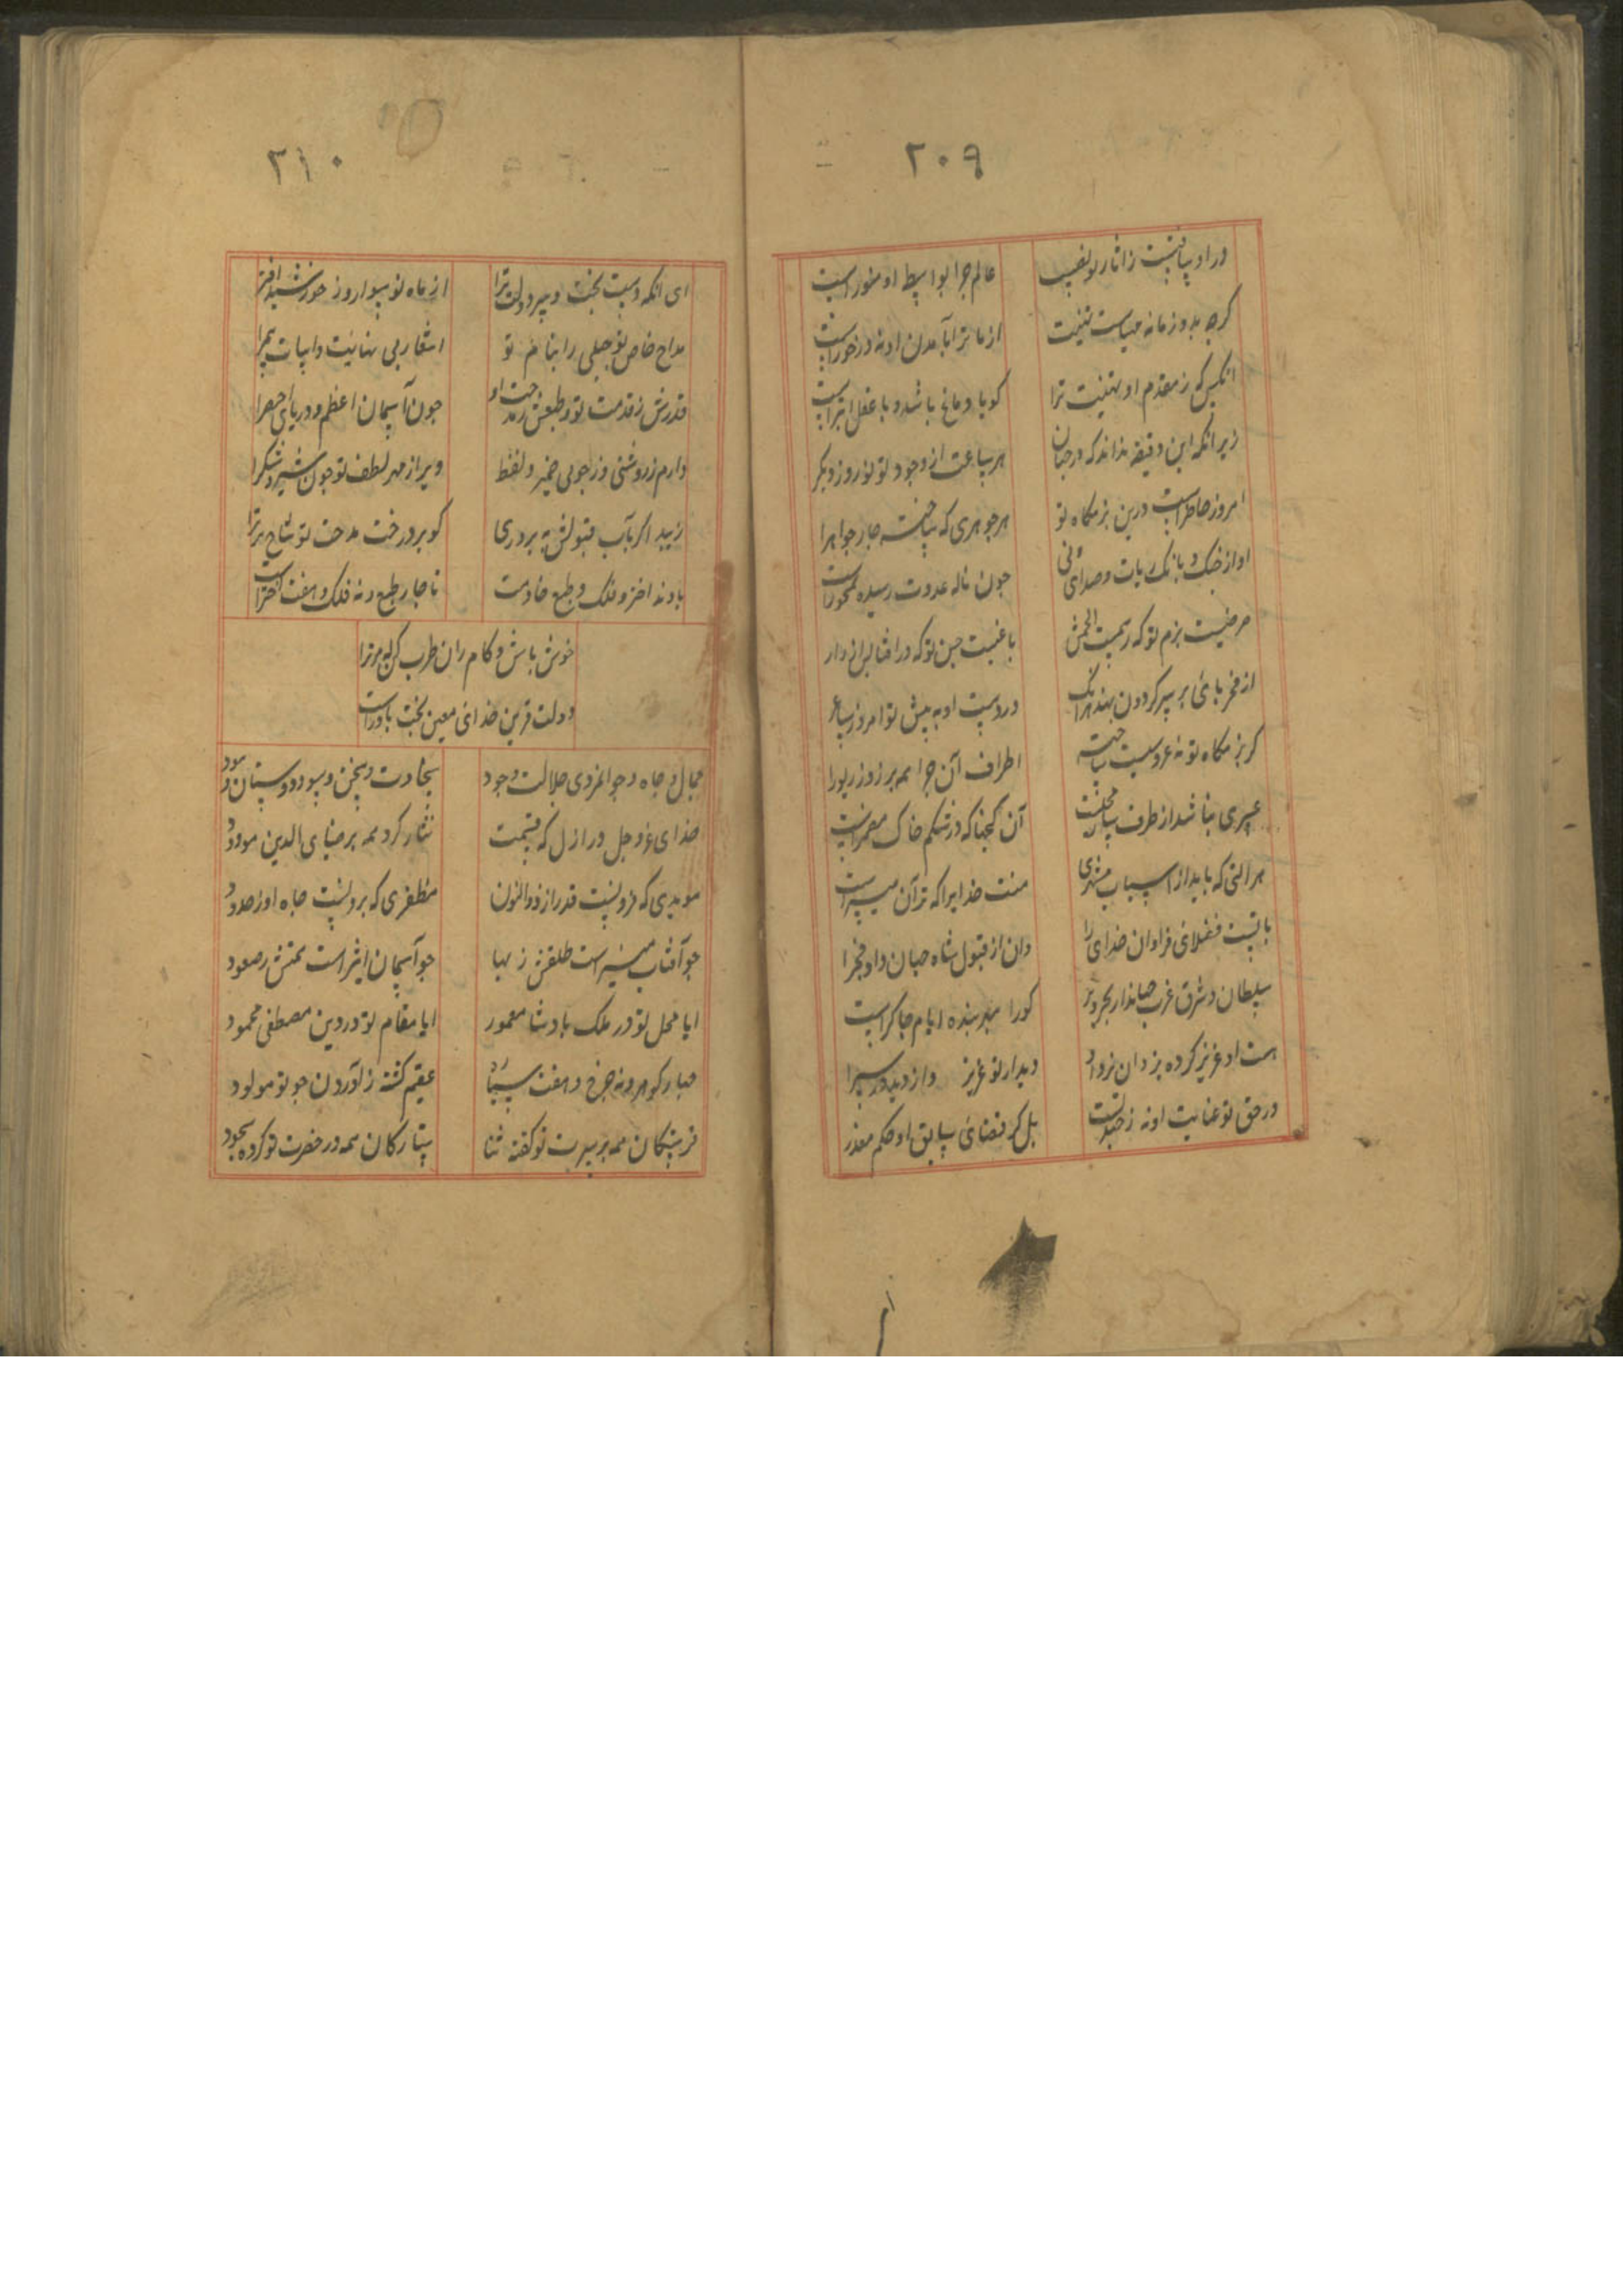 ۲۰۹
ور او نیافتست ز انار تو نصیب
عالم جرا بواسطه او منور است
کرجه بدو زمانه مهیاست تهنیت
از ما ترا بآمدن او نه درخور است
انکس که ز مقدم او تهنیت ترا
کویا دماغ باشد و با عقل ابتر است
زیرا نکه این دقیقه نداند که در جهان
هر ساعت از وجود تو نوروز دیکر
امروز حاظر است درین بزمکاه تو
هر جوهری که ساخته جار جواهرا
اواز جنک و بانک رباب و صدای نی
جون ناله عدوت رسیده بمحور است
مر جنت بزم تو که رسمیت
با غیست جشن تو که در افشا
از فخر بای بر سر کردون نهد
در دست او به پیش تو امروز ساغر
کر بزمکاه تو نه عروسیست ساخته
اطراف آن جرا همه بر زر و زیورا
عسری نباشد از طرف مجلست
آن کنجها که در شکم خاک مضمر است
هر التی که باید از اسباب مشتری
منت خدایرا که ترا آن میسر است
با تست فضلای فراوان خدای را
وان از قبول شاه جهان داد مخبرا
سلطان شرق و غرب جهاندار بحر و بر
کورا سبهر بنده و ایام جاکر است
هست او عزیز کرده یزدان و نزد او
دیدار تو عزیز و از دیده
در حق تو عنایت او نه ز جهد تست
بل کز قضای سابق او حکم مقدر
۲۱۰
ای انکه دست بخت و سر دولت ترا
از ماه نو سوار و ز خورشید افسر
مداح خاص تو جبلی را بنام تو
اشعار بی نهایت و ابیات بیمرا
قدرش ز قدمت تو و طبعش ز مدحت او
جون آسمان اعظم و دریای اخضرا
دارم ز روشنی و ز جوبی ضمیر و لفظ
ویر از مهر لطف تو جون شیر و شکرا
زیبد اکر بآب قبولش به پروری
کو بر درخت مدحت تو شاخ برترا
بادند اختر و فلک و طبع خادمت
تا جار طبع و نه فلک و هفت اختر است
خوش باش و کام ران طرب کن که مر ترا
دولت قرین خدای معین بخت یاور است
جمال و جاه و جوانمردی جلالت و جود
سخاوت و سخن و سود دوستان
خدای عز و جل در ازل که قسمت
نثار کرد همه بر ضیای الدین مودود
مویدی که فزونست قدر از ذوالنون
مظفری که برونست جاه او ز حدود
جو آفتاب منیر است طلعتش ز بها
جو آسمان اثیر است همتش ز صعود
ایا محل تو در ملک بادشا معمور
ایا مقام تو در دین مصطفی محمود
جهار کوهر و نه جرخ و هفت سیاره
عقیم کشته ز آوردن جو تو مولود
فرشتکان همه بر سیرت تو کفته ثنا
ستارکان همه در حضرت تو کرده سجود